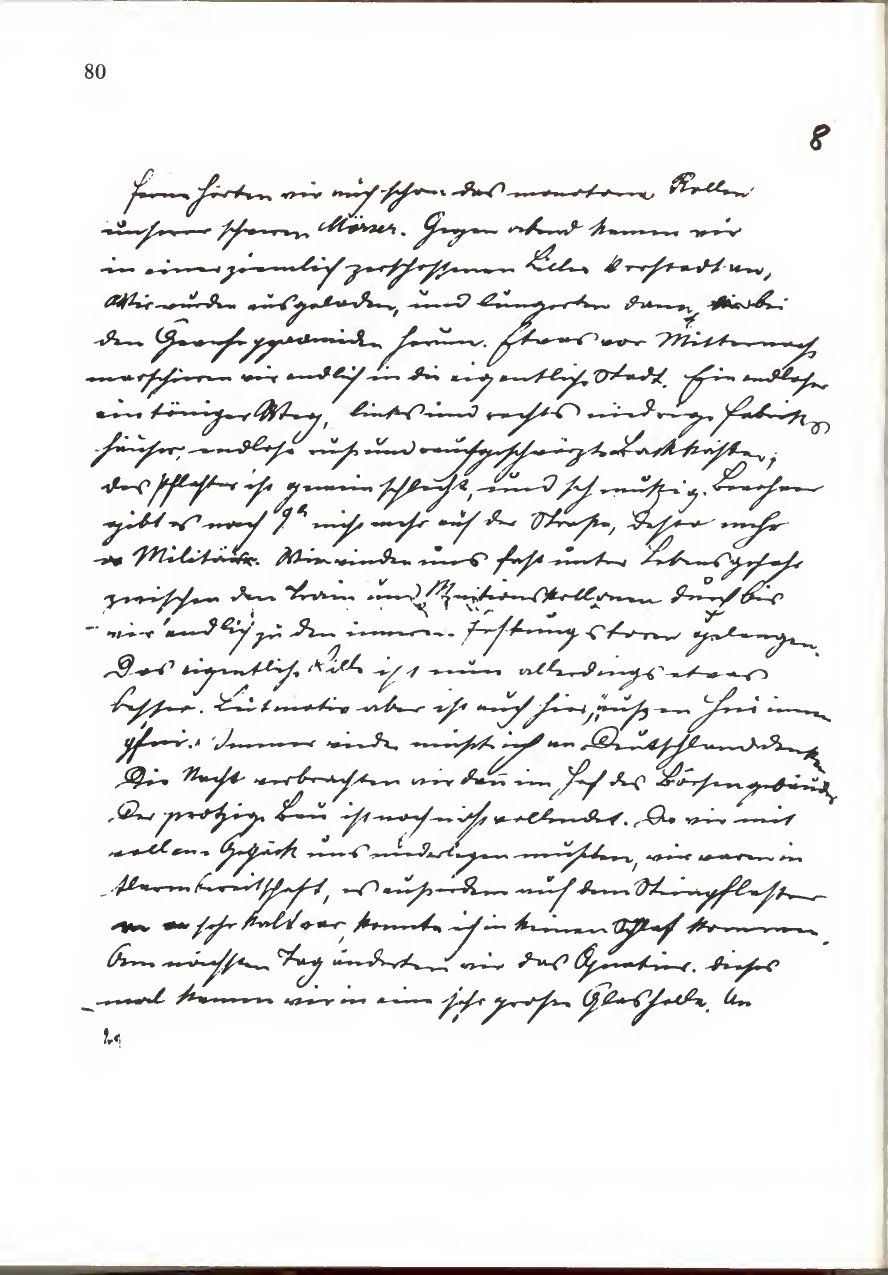 80
8
Ferne hörten wir auch schon das monotone Rollen
unserer schweren Mörser. Gegen abend kamen wir
in einer ziemlich zerschossenen Liller Vorstadt an,
Wir wurden ausgeladen, und lungerten dann bei
den Gewehrpyramiden herum. Etwas vor Mitternacht
marschieren wir endlich in die eigentliche Stadt. Ein endloser
eintöniger Weg, links und rechts niedrige Fabrik
häuser, endlose ruß und rauchgeschwärzte Backkästen;
das Pflaster ist gemein schlecht, und schmutzig. Bewohner
gibt es nach 9h nicht mehr auf der Straße, desto mehr
Militär. Wir winden uns fast unter Lebensgefahr
zwischen den Train und Munitionskollonnen durch bis
wir endlich zu den inneren Festungstoren gelangen.
Das eigentliche Lille ist nun allerdings etwas
besser. Leitmotiv aber ist auch hier, „außen hui innen
pfui." Immer wieder mußte ich an Deutschland denken
Die Nacht verbrachten wir dann im Hof des Börsengebäudes
Der protzige Bau ist noch nicht vollendet. Da wir mit
vollem Gepäck uns niederlegen mußten, wir waren in
Alarmbereitschaft, es außerdem auf dem Steinpflaster
sehr kalt war, konnte ich in keinen Schlaf kommen.
Am nächsten Tag änderten wir das Quatier. dieses
mal kamen wir in eine sehr große Glashalle. An